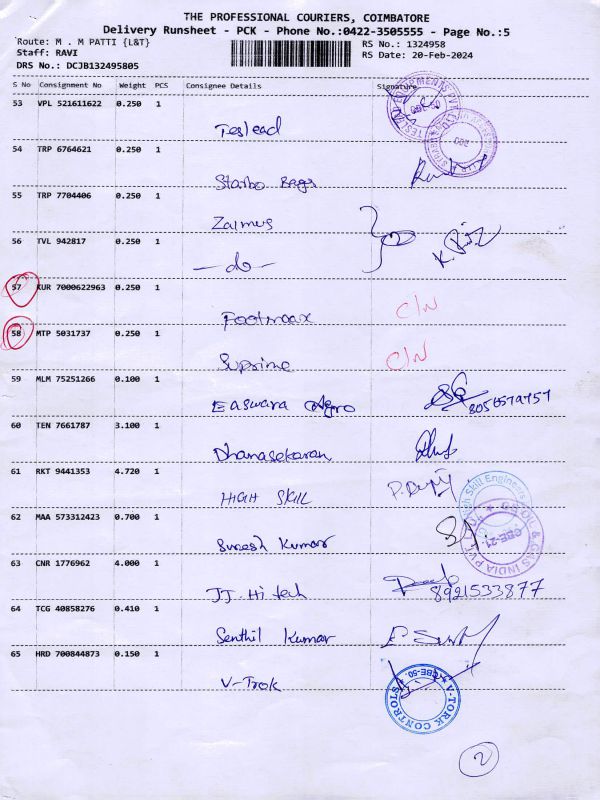 THE PROFESSIONAL COURIERS, COIMBATORE
Delivery Runsheet - PCK - Phone No.:0422-3505555 - Page No.:5
Route: M . M PATTI {L&T} RS No.: 1324958
Staff: RAVI RS Date: 20-Feb-2024
DRS No.: DCJB132495805
S No Consignment No Weight PCS Consignee Details Signature
53 VPL 521611622 0.250 1
Teslead
54 TRP 6764621 0.250 1
Starbo Bags
55 TRP 7704406 0.250 1
Zalmus
56 TVL 942817 0.250 1
-do-
57 KUR 7000622963 0.250 1
Footmaax C/N
58 MTP 5031737 0.250 1
Suprime C/N
59 MLM 75251266 0.100 1
Easwara Agro
60 TEN 7661787 3.100 1
Dhanasekaran
61 RKT 9441353 4.720 1
HIGH SKILL
62 MAA 573312423 0.700 1
Suresh Kumar
63 CNR 1776962 4.000 1
JJ. Hi tech 8921533877
64 TCG 40858276 0.410 1
Senthil Kumar
65 HRD 700844873 0.150 1
V-Trok
V-TORK CONTROLS
CBE-50.
2